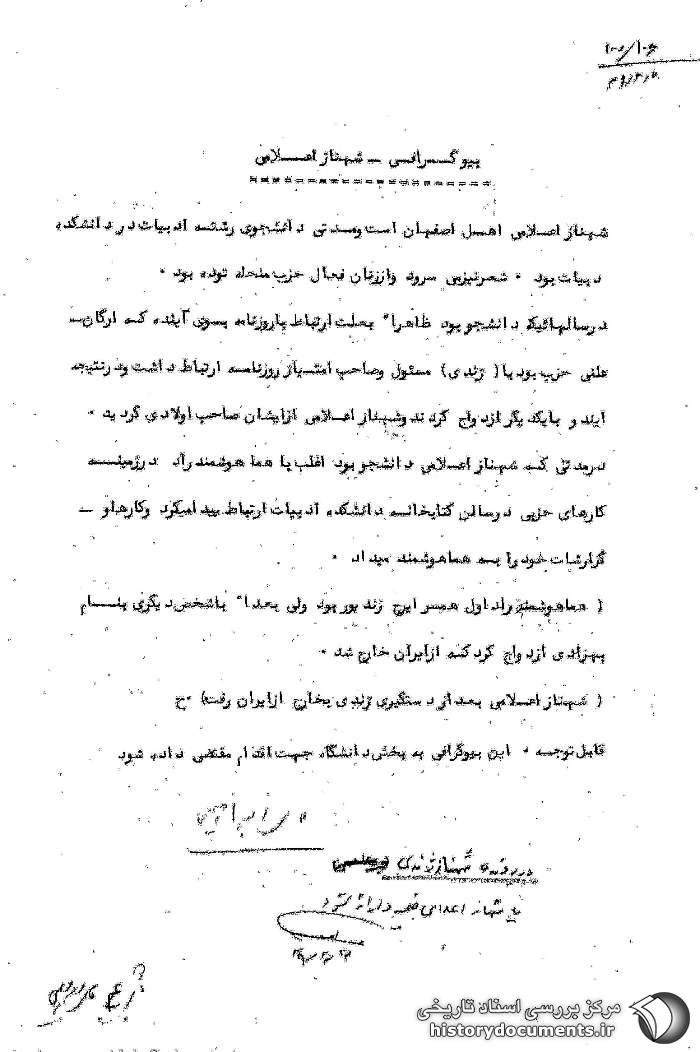 بیوگرافی - شهناز اعلامی
شهناز اعلامی اهل اصفهان است ومدتی دانشجوی رشته ادبیات در دانشکده
دبیات بود . شعرنیزمی سرود واززنان فعال حزب منحله توده بود .
درسالهائیکه دانشجو بود ظاهرا" بعلت ارتباط باروزنامه بسوی آینده که ارگان-
علنی حزب بود با( ژندی) مسئول وصاحب امتیاز روزنامه ارتباط داشت ودرنتیجه
آیند و بایکدیگر ازدواج کردند وشهناز اعلامی ازایشان صاحب اولادی گردید .
درمدتی که شهناز اعلامی دانشجو بود اغلب با هما هوشمند راد درزمینه
کارهای حزبی درسالن کتابخانه دانشکده ادبیات ارتباط پیدامیکرد وکارهاو -
گزارشات خود را به هماهوشمند میداد .
( هماهوشمند راد اول همسر ایرج زندپور بود ولی بعدا" باشخص دیگری بنام
بهزادی ازدواج کردکه ازایران خارج شد .
( شهناز اعلامی بعد از دستگیری ژندی بخارج ازایران رفت) .ح
قابل توجه . این بیوگرافی به بخش دانشگاه جهت اقدام مقتضی داده شود
در پرونده شهناز ژندی
شهناز اعلامی
مرکز بررسی اسناد تاریخی
historydocuments.ir